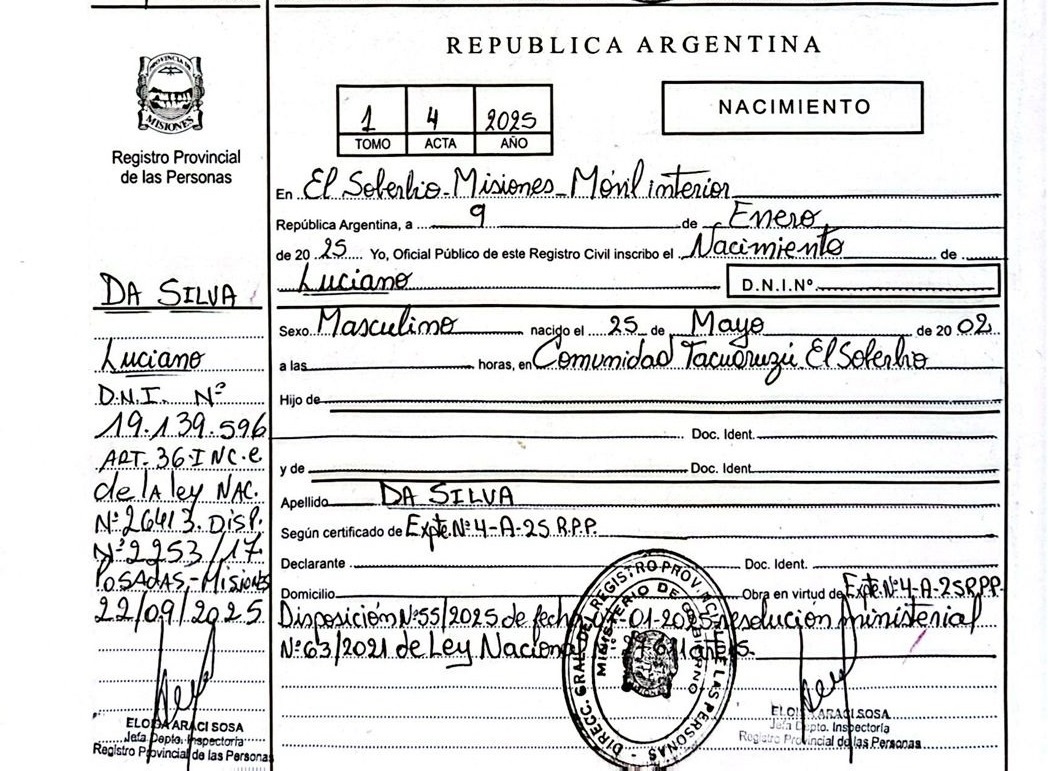 REPUBLICA ARGENTINA
PROVINCIA DE
MISIONES
Registro Provincial
de las Personas
1 4 2025
TOMO ACTA AÑO
NACIMIENTO
En El Soberbio-Misiones-Móvil interior
República Argentina, a 9 de Enero
de 20 25 Yo, Oficial Público de este Registro Civil inscribo el Nacimiento de
Luciano D.N.I.Nº
Sexo Masculino nacido el 25 de Mayo de 20 02
a las horas, en Comunidad Tacuaruzú El Soberbio
Hijo de
Doc. Ident.
y de Doc. Ident.
Apellido DA SILVA
Según certificado de Expte.Nº4-A-25 R.P.P.
Declarante Doc. Ident.
Domicilio Obra en virtud de Expte.Nº4-A-25 R.P.P.
Disposición Nº55/2025 de fecha -01-2025-resolución ministerial
Nº63/2021 de Ley Nacional
DIRECC. GRAL DEL REGISTRO PROVINCIAL DE LAS PERSONAS
MINISTERIO DE GOBIERNO
ELOISA ARACI SOSA
Jefa Depto. Inspectoría
Registro Provincial de las Personas
DA SILVA
Luciano
D.N.I. Nº
19.139.596
ART-36-INC.e
de la ley NAC.
Nº26413. DISP.
Nº2253/17.
POSADAS-MISIONES
22/09/2025
ELOISA ARACI SOSA
Jefa Depto. Inspectoría
Registro Provincial de las Personas